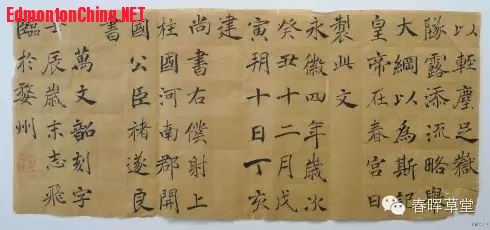 以輕塵足嶽
隊露添流略舉
大綱以為斯記
皇帝在春宮日
製此文
永徽四年歲次
癸丑十二月戊
寅朔十日丁亥
建
尚書右僕射上
柱國河南郡開
國公臣褚遂良
書
萬文韶刻字
壬辰歲末志飛
臨於婺州
EdmontonChing.NET
春晖草堂